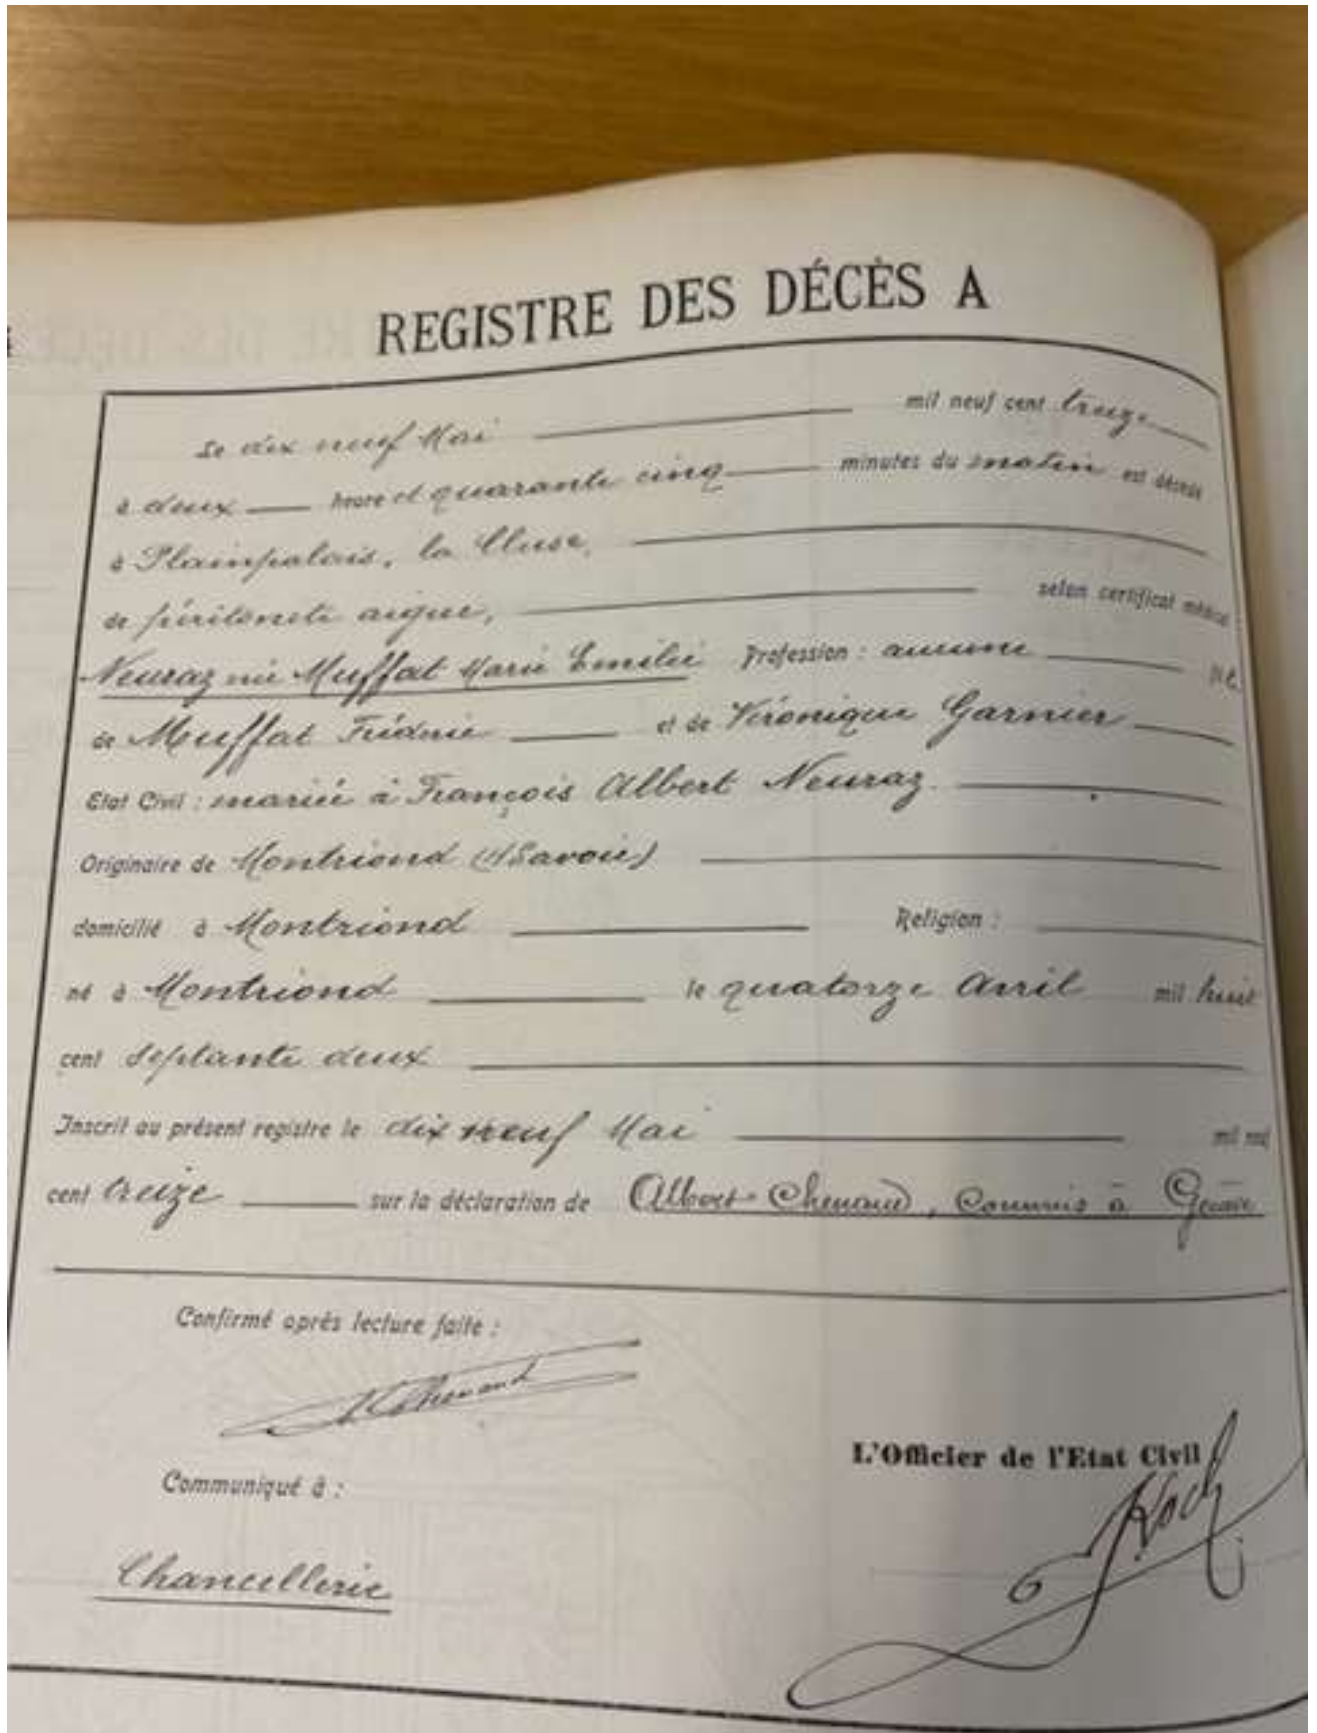 REGISTRE DES DÉCÈS A
Le dix neuf Mai mil neuf cent treize
à deux heure et quarante cinq minutes du matin est décédé
à Plainpalais, la Cluse,
de péritonite aigue, selon certificat médical :
Neuraz née Muffat Marie Emilie Profession : aucune
de Muffat Fréderic et de Véronique Garnier
Etat Civil : mariée à François Albert Neuraz.
Originaire de Montriond (HSavoie)
domicilié à Montriond Religion :
né à Montriond le quatorze Avril mil huit
cent septante deux
Inscrit au présent registre le dix neuf Mai mil neuf
cent treize sur la déclaration de Albert Chenaud, Commis à Genève
Confirmé après lecture faite :
Chenaud
L'Officier de l'Etat Civil
Koch
Communiqué à :
Chancellerie